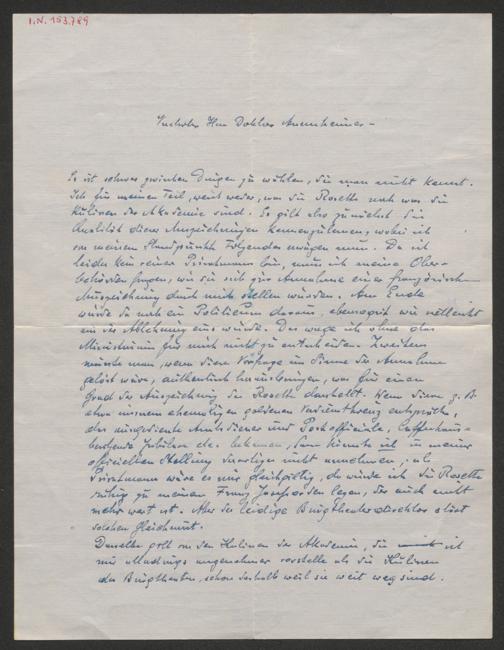 I.N. 153.789
Verehrter Herr Doktor Auernheimer –
Es ist schwer zwischen Dingen zu wählen, die man nicht kennt.
Ich für meinen Teil, weiss weder, was die Rosette noch was die
Palmen der Akademie sind. Es gilt also zunächst die
Qualität dieser Auszeichnungen kennenzulernen, wobei ich
von meinem Standpunkt Folgendes sagen muss. Da ich
leider kein reiner Privatmann bin, muss ich meine Ober-
behörden fragen, wie sie sich zur Annahme einer französischen
Auszeichnung durch mich stellen würden. Am Ende
würde da noch ein Politicum daraus, ebensogut wie vielleicht
ein der Ablehnung eins würde. Das wage ich ohne das
Ministerium für mich nicht zu entscheiden. Zweitens
müsste man, wenn diese Vorfrage im Sinne der Annahme
gelöst wäre, authentisch herausbringen, was für einen
Grad der Auszeichnung die Rosette darstellt. Wenn diese z. B.
etwa unserem ehemaligen goldenen Verdienstkreuz entspräche,
das ausgediente Amtsdiener und Postoffiziale,
Jubilare etc. bekamen, dann könnte ich in meiner
offiziellen Stellung derartiges nicht annehmen; als
Privatmann wäre es mir gleichgiltig, da würde ich die Rosette
ruhig zu meinem Franz Josefsorden legen, der auch nicht
mehr wert ist. Aber der leidige Burgtheaterdirektor
solchen Gleichmut.
Dasselbe gilt von den Palmen der Akademie, die ich
mir allerdings angenehmer vorstelle als die Palmen
des Burgtheaters, schon deshalb weil sie weit weg sind.